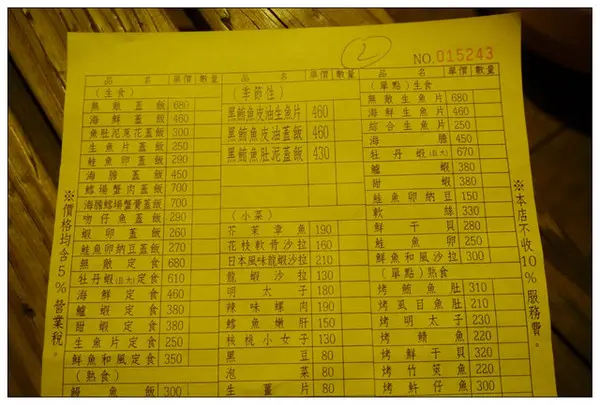 2
NO.015243
品 名 單價 數量
(生食)
無敵蓋飯 680
海鮮蓋飯 460
魚肚泥尾花蓋飯 300
生魚片蓋飯 250
鮭魚卵蓋飯 290
海膽蓋飯 450
鱈場蟹肉蓋飯 700
海膽鱈場蟹膏蓋飯 700
吻仔魚蓋飯 290
蝦卵蓋飯 260
鮭魚卵納豆蓋飯 270
無敵定食 680
牡丹蝦(巨大)定食 610
海鮮定食 460
鱸蝦定食 380
甜蝦定食 380
生魚片定食 250
鮮魚和風定食 350
(熱食)
鰻魚飯 300
品 名 單價 數量
(季節性)
黑鮪魚皮油生魚片 460
黑鮪魚皮油蓋飯 460
黑鮪魚肚泥蓋飯 430
(小菜)
芥茉章魚 190
花枝軟骨沙拉 160
日本風味龍蝦沙拉 210
龍蝦沙拉 130
明太子 180
辣味螺肉 190
鱈魚嫩肝 150
核桃小女子 130
黑豆 80
泡菜 80
生薑片 80
品 名 單價 數量
(單點)生食
無敵生魚片 680
海鮮生魚片 460
綜合生魚片 250
海膽 450
牡丹蝦(巨大) 670
鱸蝦 380
甜蝦 380
鮭魚卵納豆 150
軟絲 330
鮮干貝 280
鮭魚卵 250
鮮魚和風沙拉 330
(單點)熱食
烤鮪魚肚 310
烤虱目魚肚 210
烤明太子 230
烤鯖魚 220
烤鮮干貝 320
烤竹筴魚 220
烤魽仔魚 300
※價格均含5%營業稅。
※本店不收10%服務費。